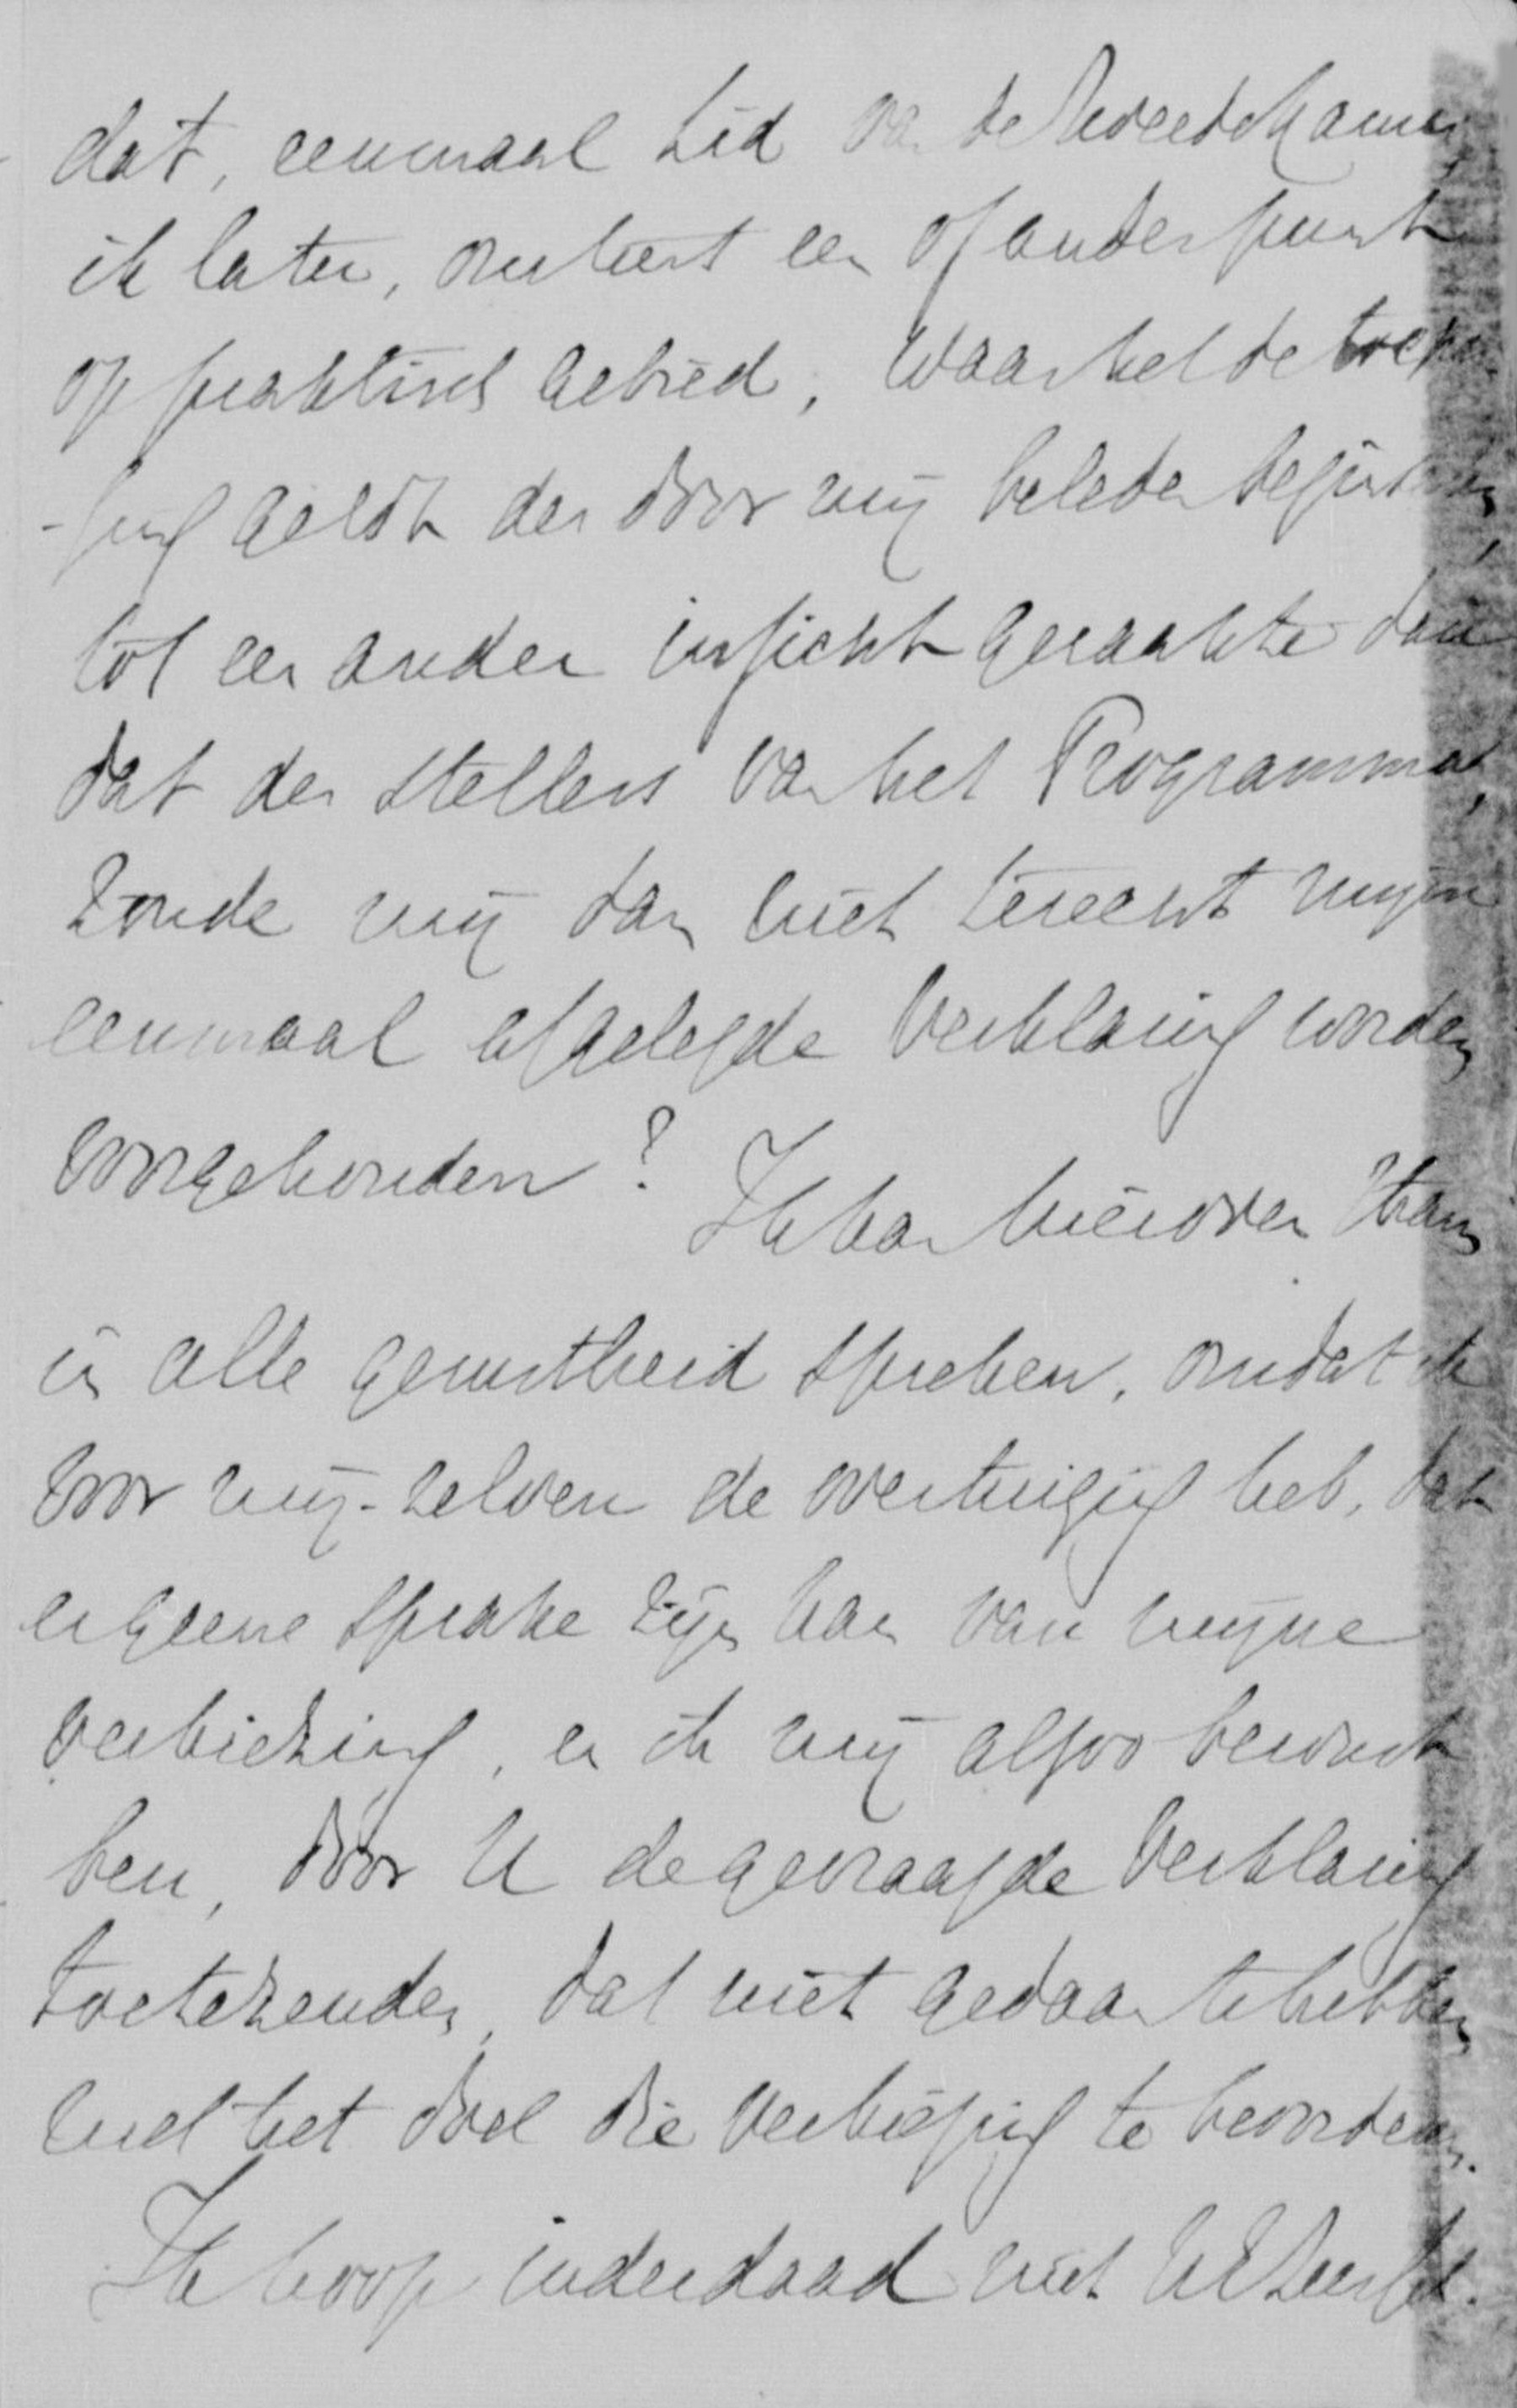 dat, eenmaal Lid van de Tweede Kamer,
ik later, omtrent een of ander punt
op praktisch gebied, waar het de toepas-
-sing geldt der door mij beleden beginselen,
tot een ander inzicht geraakte dan
dat der stellers van het Programma,
zoude mij dan niet terecht mijne
eenmaal afgelegde verklaring worden
voorgehouden? Ik kan hierover thans
in alle gerustheid spreken, omdat ik
voor mij-zelven de overtuiging heb, dat
er geene sprake zijn kan van mijne
verkiezing, en ik mij alzoo bewust
ben, door U de gevraagde verklaring
toetezenden, dat niet gedaan te hebben
met het doel die verkiezing te bevorderen.
Ik hoop inderdaad niet